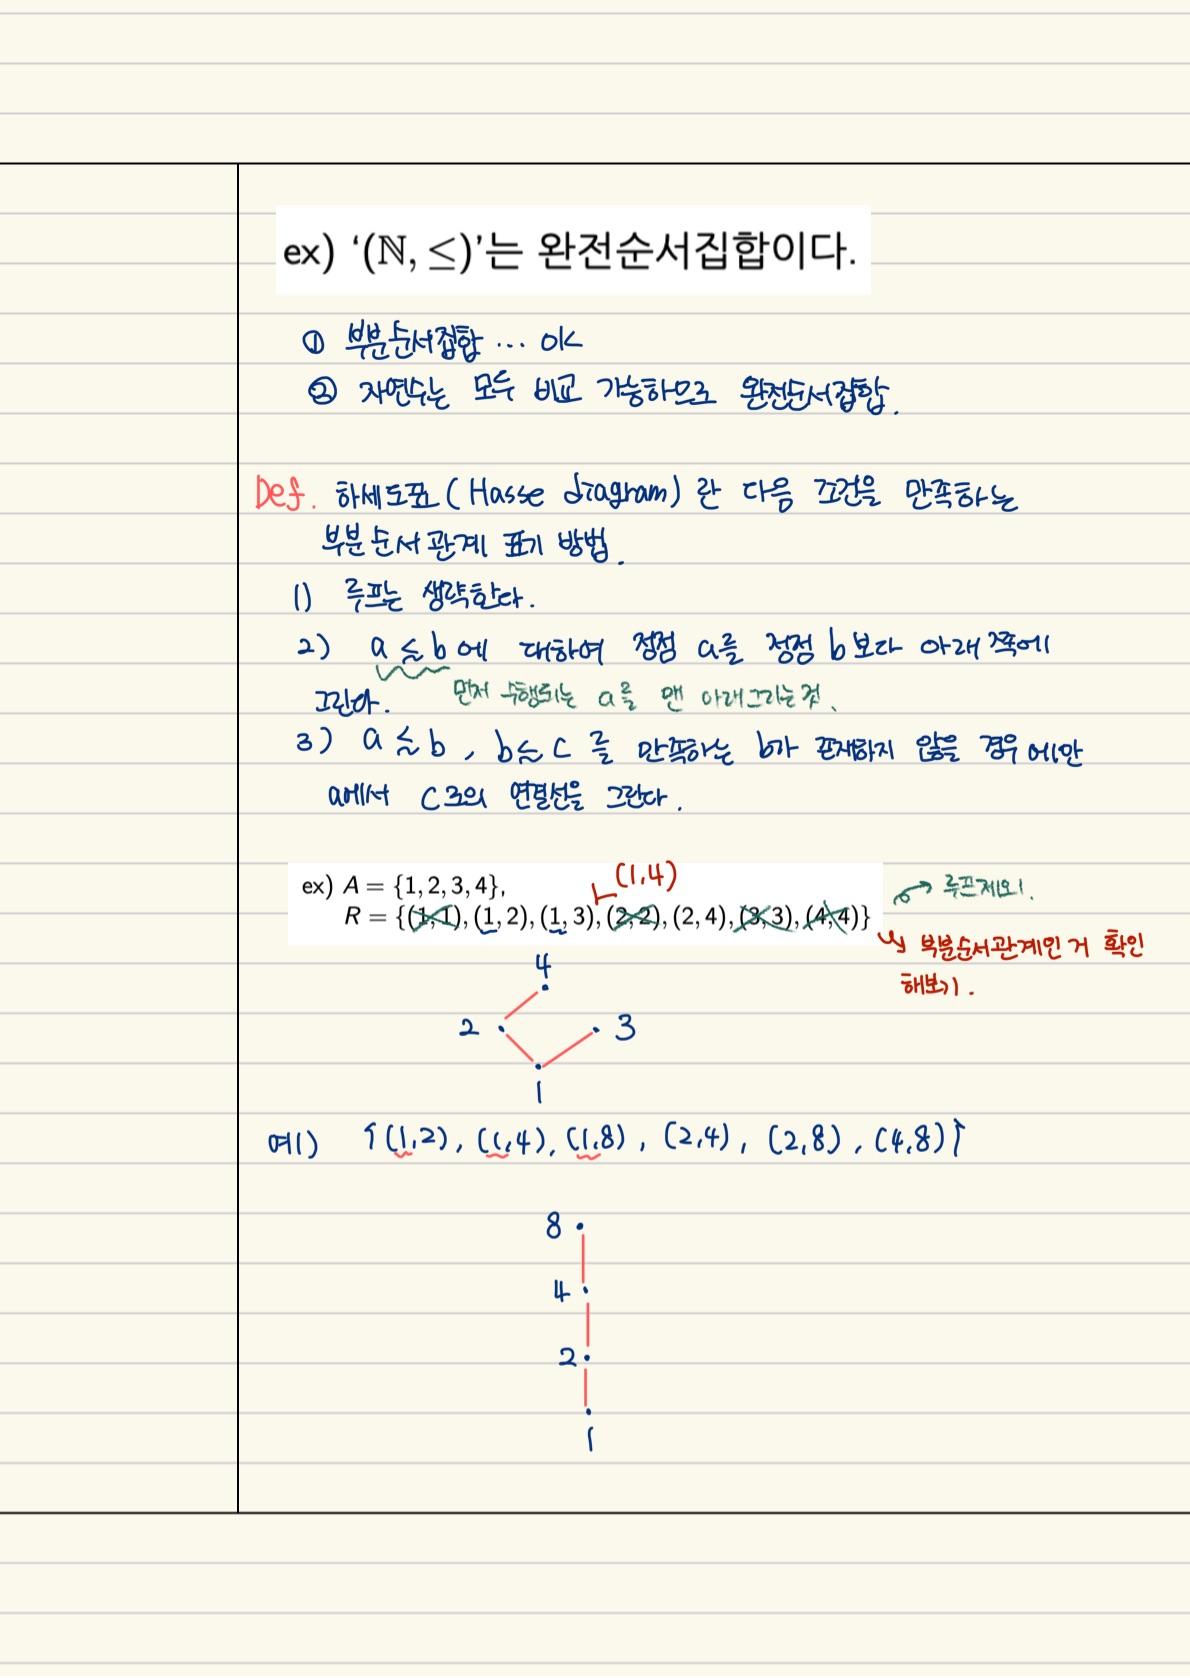 ex) ‘(ℕ, ≤)’는 완전순서집합이다.
① 부분순서집합 ... OK
② 자연수는 모두 비교 가능하므로 완전순서집합.
Def. 하세도표 (Hasse diagram) 란 다음 조건을 만족하는
부분순서관계 표기 방법.
1) 루프는 생략한다.
2) a ≲ b에 대하여 정점 a를 정점 b보다 아래쪽에
그린다. 먼저 수행되는 a를 맨 아래그리는것.
3) a ≲ b, b ≲ c 를 만족하는 b가 존재하지 않을 경우에만
a에서 c로의 연결선을 그린다.
(1,4)
ex) A = {1, 2, 3, 4},
R = {(1, 1), (1, 2), (1, 3), (2, 2), (2, 4), (3, 3), (4, 4)}
루프제외!
부분순서관계인 거 확인
해보기.
4
2 3
1
예1) {(1,2), (1,4), (1,8), (2,4), (2,8), (4,8)}
8
4
2
1